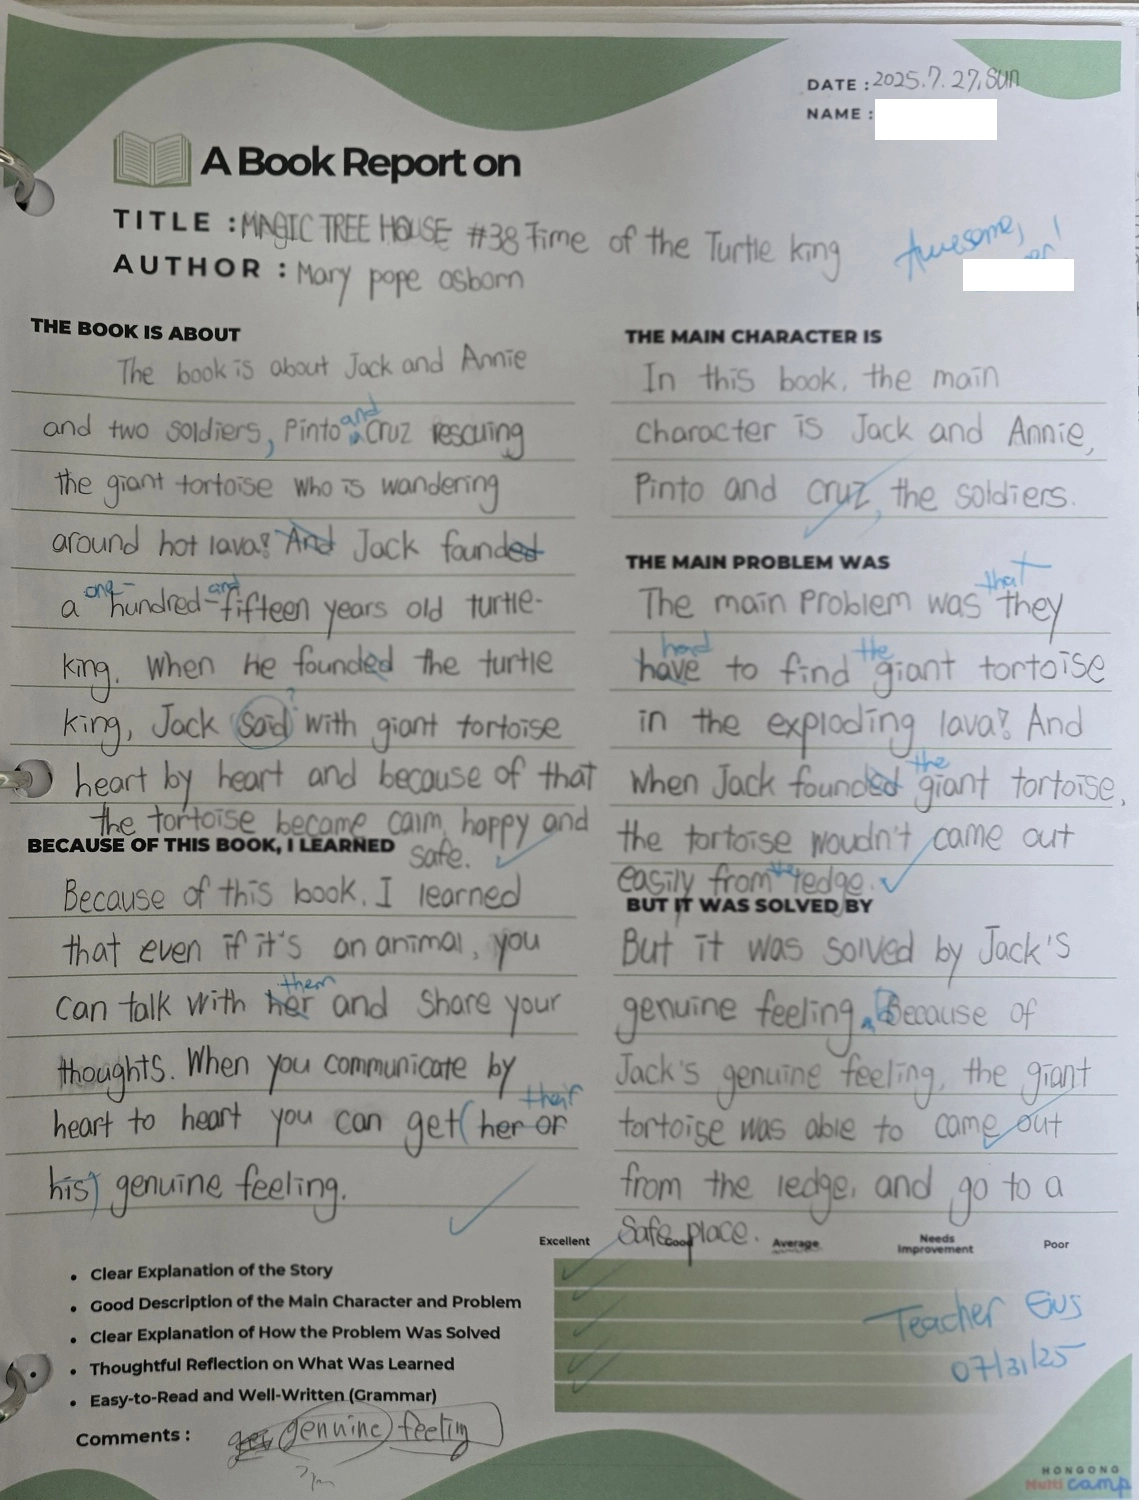 DATE : 2025.7.27, SUN
NAME :
A Book Report on
TITLE : MAGIC TREE HOUSE #38 Time of the Turtle king
AUTHOR : Mary pope osborn
Awesome,
THE BOOK IS ABOUT
The book is about Jack and Annie
and two soldiers, Pinto and Cruz rescuing
the giant tortoise who is wandering
around hot lava! And Jack founded
a one-hundred-and-fifteen years old turtle-
king. When he founded the turtle
king, Jack said ? with giant tortoise
heart by heart and because of that
the tortoise became calm, happy and
safe.
BECAUSE OF THIS BOOK, I LEARNED
Because of this book. I learned
that even if it's an animal, you
can talk with her them and share your
thoughts. When you communicate by
heart to heart you can get (her or their
his) genuine feeling.
THE MAIN CHARACTER IS
In this book, the main
character is Jack and Annie,
Pinto and Cruz, the soldiers.
THE MAIN PROBLEM WAS
The main problem was that they
have had to find the giant tortoise
in the exploding lava! And
when Jack founded the giant tortoise,
the tortoise woudn't came out
easily from the ledge.
BUT IT WAS SOLVED BY
But it was solved by Jack's
genuine feeling. Because of
Jack's genuine feeling, the giant
tortoise was able to came out
from the ledge, and go to a
safe place.
Excellent Good Average Needs Improvement Poor
• Clear Explanation of the Story
• Good Description of the Main Character and Problem
• Clear Explanation of How the Problem Was Solved
• Thoughtful Reflection on What Was Learned
• Easy-to-Read and Well-Written (Grammar)
Teacher
07/31/25
Comments : genuine feeling
HONGONG
Multi camp